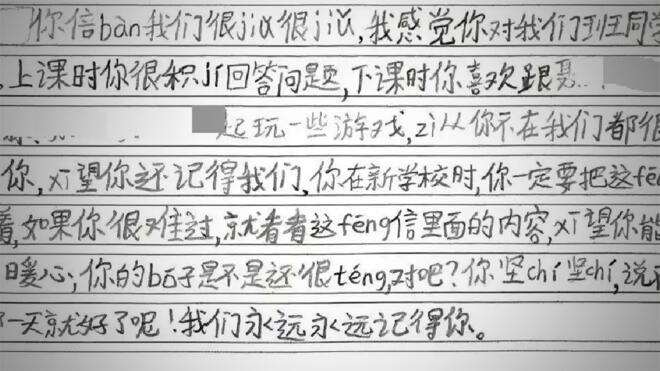 你陪bàn我们很jiǔ很jiǔ,我感觉你对我们班同学
上课时你很积jí回答问题,下课时你喜欢跟聂
起玩一些游戏,zì从你不在我们都很
你,xī望你还记得我们,你在新学校时,你一定要把这fēng
着,如果你很难过,就看看这fēng信里面的内容,xī望你能
暖心,你的bó子是不是还很téng,对吧?你坚chí坚chí,说
一天就好了呢!我们永远永远记得你。